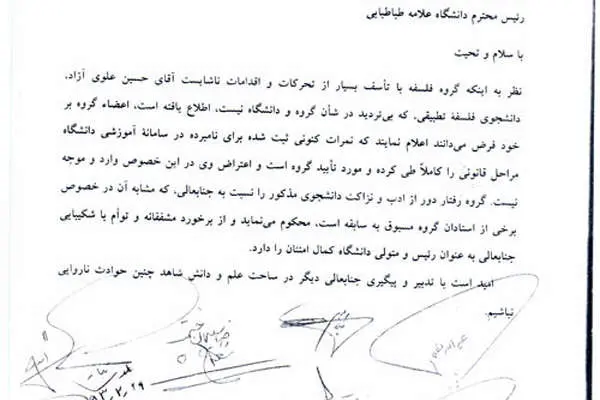 رئیس محترم دانشگاه علامه طباطبایی
با سلام و تحیت
نظر به اینکه گروه فلسفه با تأسف بسیار از تحرکات و اقدامات ناشایست آقای حسین علوی آزاد،
دانشجوی فلسفهٔ تطبیقی، که بی‌تردید در شأن گروه و دانشگاه نیست، اطلاع یافته است، اعضاء گروه بر
خود فرض می‌دانند اعلام نمایند که نمرات کنونی ثبت شده برای نامبرده در سامانهٔ آموزشی دانشگاه
مراحل قانونی را کاملاً طی کرده و مورد تأیید گروه است و اعتراض وی در این خصوص وارد و موجه
نیست. گروه رفتار دور از ادب و نزاکت دانشجوی مذکور را نسبت به جنابعالی، که مشابه آن در خصوص
برخی از استادان گروه مسبوق به سابقه است، محکوم می‌نماید و از برخورد مشفقانه و توأم با شکیبایی
جنابعالی به عنوان رئیس و متولی دانشگاه کمال امتنان را دارد.
امید است با تدبیر و پیگیری جنابعالی دیگر در ساحت علم و دانش شاهد چنین حوادث ناروایی
نباشیم.
۹۳,۲,۲۹